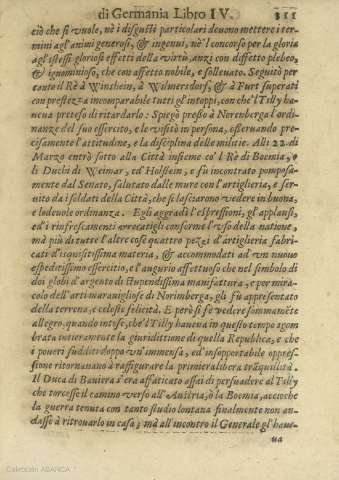 di Germania Libro IV. 311
ciò che si vuole, nè i disgusti particolari deuono mettere i ter-
mini agl'animi generosi, & ingenui, nè'l concorso per la gloria
agl'istessi gloriosi effetti della virtù, anzi con diffetto plebeo,
& ignominioso, che con affetto nobile, e solleuato. Seguitò per
tanto il Rè à Winzheim, à Wilmersdorf, & à Furt superati
con prestezza incomparabile tutti gl'intoppi, con che'l Tilly ha-
ueua preteso di ritardarlo: Spiegò presso à Norenberga l'ordi-
nanze del suo essercito, e le visitò in persona, osseruando preci-
samente l'attitudine, e la disciplina delle militie. Alli 22. di
Marzo entrò sotto alla Città insieme co'l Rè di Boemia, e
li Duchi di Weimar, ed Holstein, e fù incontrato pomposa-
mente dal Senato, salutato dalle mure con l'artiglieria, e ser-
uito da i soldati della Città, che si lasciarono vedere in buona,
e lodeuole ordinanza. Egli aggradì l'espressioni, gl'applausi,
ed i rinfrescamenti arrecatigli conforme l'vso della natione,
mà più di tutte l'altre cose quattro pezzi d'artiglieria fabri-
cati d'isquisitissima materia, & accommodati ad vn nuouo
espeditissimo essercitio, e l'augurio affettuoso che nel simbolo di
doi globi d'argento di stupendissima manifattura, e per mira-
colo dell'arti marauigliose di Norimberga, gli fù appresentato
della terrena, e celeste felicità. E però si fè vedere sommamēte
allegro, quando intese, che'l Tilly haueua in questo tempo agom
brata intieramente la giuridittione di quella Republica, e che
i poueri sudditi doppo vn'immensa, ed insopportabile oppres-
sione ritornauano à raffigurare la primiera libera trāquillità.
Il Duca di Bauiera s'era affaticato assai di persuadere al Tilly
che torcesse il camino verso all'Austria, ò la Boemia, accioche
la guerra tenuta con tanto studio lontana finalmente non an-
dasse à ritrouarlo in casa; mà all'incontro il Generale gl'haue-
ua
Colección ABANCA